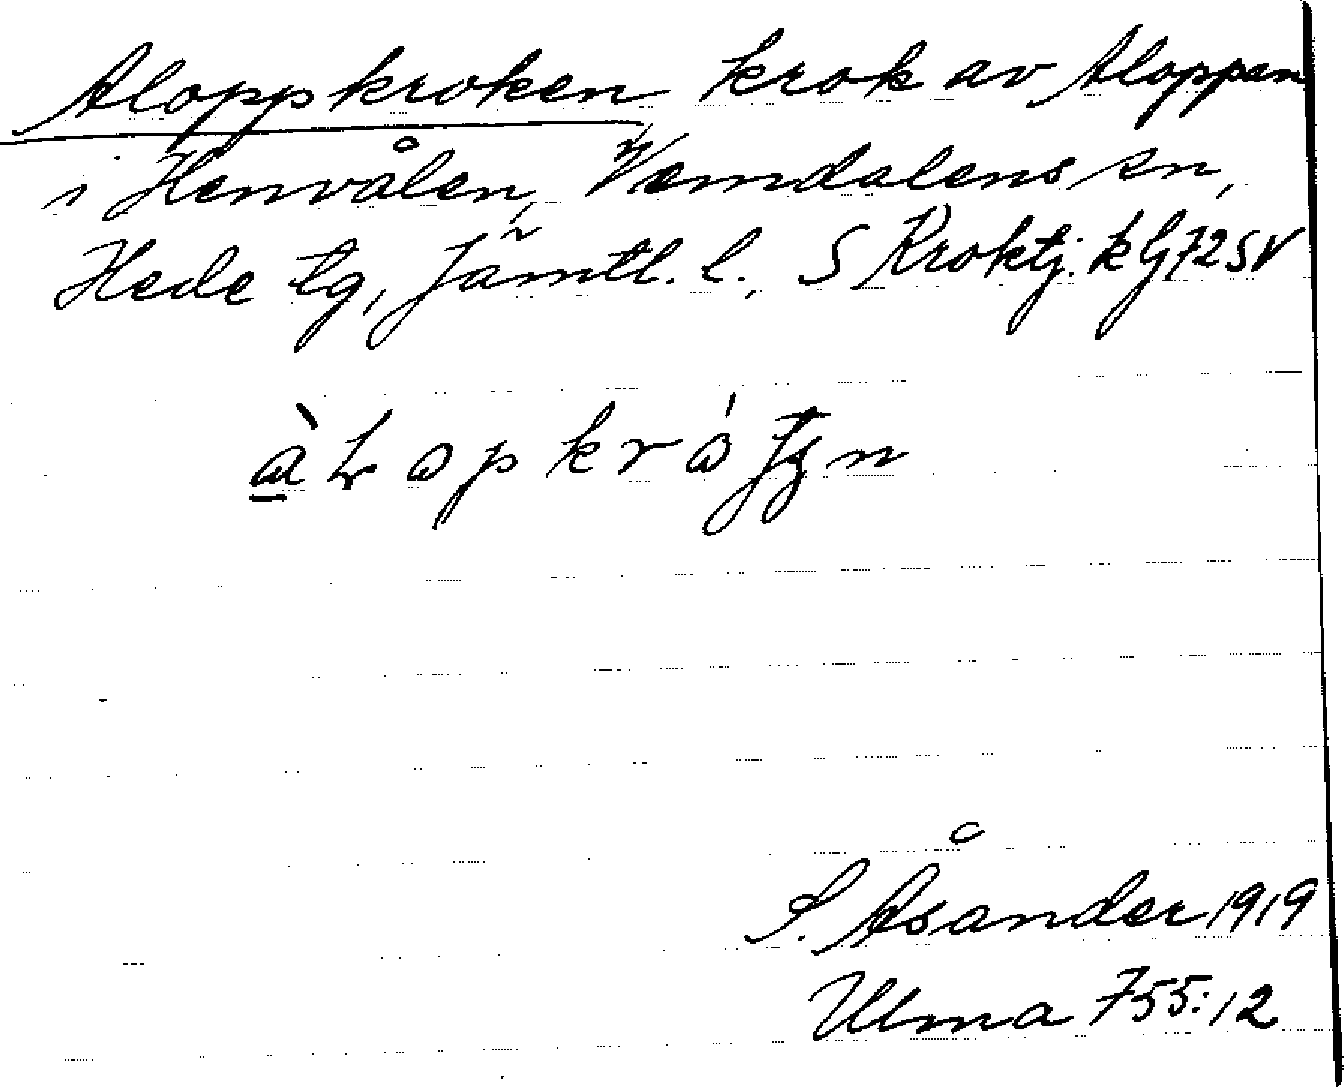 Aloppkroken krok av Aloppan
i Henvålen, Vemdalens sn,
Hede tg, Jämtl. l., S Kroktj. kG72SV
S. Åsander 1919
Ulma 755:12